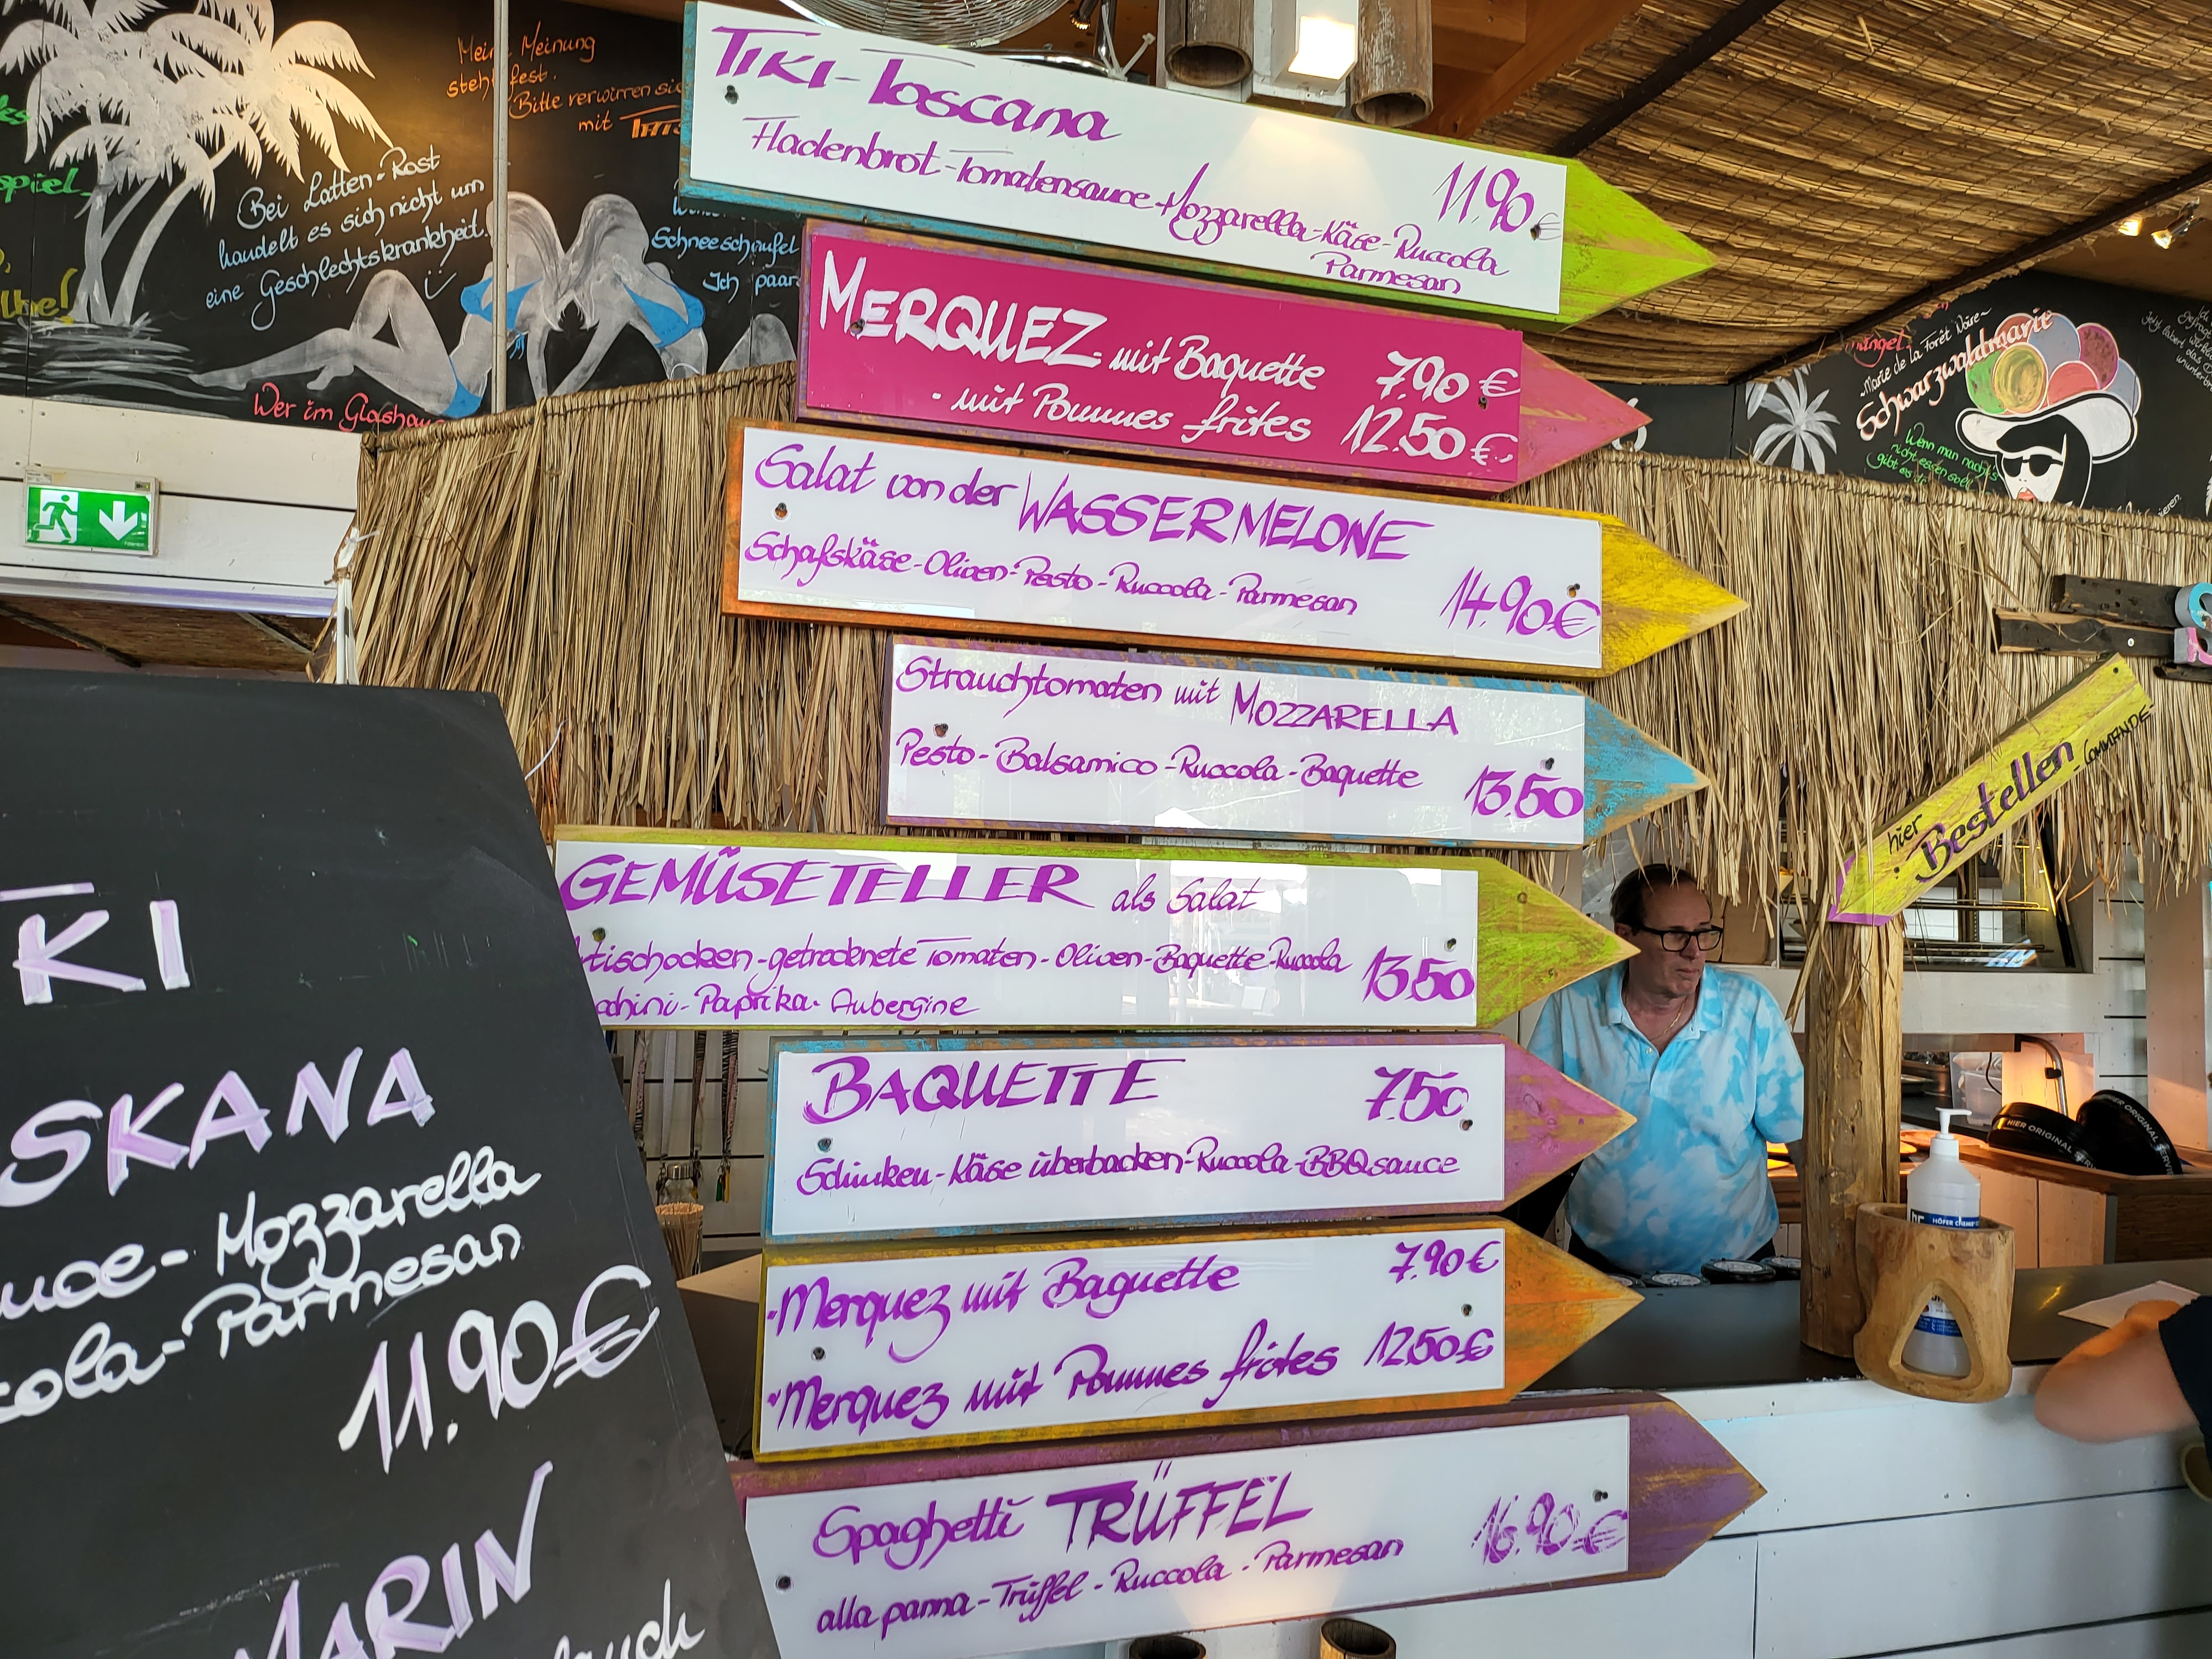 Meine Meinung
steht fest.
Bitte verwirren sie
mit
Bei Latten-Rost
handelt es sich nicht um
eine Geschlechtskrankheit.
Wer im Glashaus
Schneeschaufel
Ich
spiel
TIKI-Toscana
Fladenbrot-Tomatensauce-Mozzarella-Käse-Ruccola
Parmesan
11.90€
MERQUEZ mit Baquette 7.90 €
- mit Pommes frites 12.50 €
Salat von der WASSERMELONE
Schafskäse-Oliven-Pesto-Ruccola-Parmesan
14.90€
Strauchtomaten mit MOZZARELLA
Pesto-Balsamico-Ruccola-Baquette 13.50
GEMÜSETELLER als Salat
tischocken-getrocknete Tomaten-Oliven-Baquette-Ruccola
chini-Paprika-Aubergine
13.50
BAQUETTE 7.50
Schinken-Käse überbacken-Ruccola-BBQsauce
-Merquez mit Baguette 7.90€
-Merquez mit Pommes frites 12.50€
Spaghetti TRÜFFEL
alla panna-Trüffel-Ruccola-Parmesan
16.90€
KI
SKANA
uce-Mozzarella
cola-Parmesan
11.90€
MARIN
lauch
Marie de la Forêt Noire
Schwarzwaldmarie
Wenn man nachts
nicht essen soll
gibt es
hier
Bestellen
COMMANDE
HIER ORIGINAL
HÖFER CHEMIE